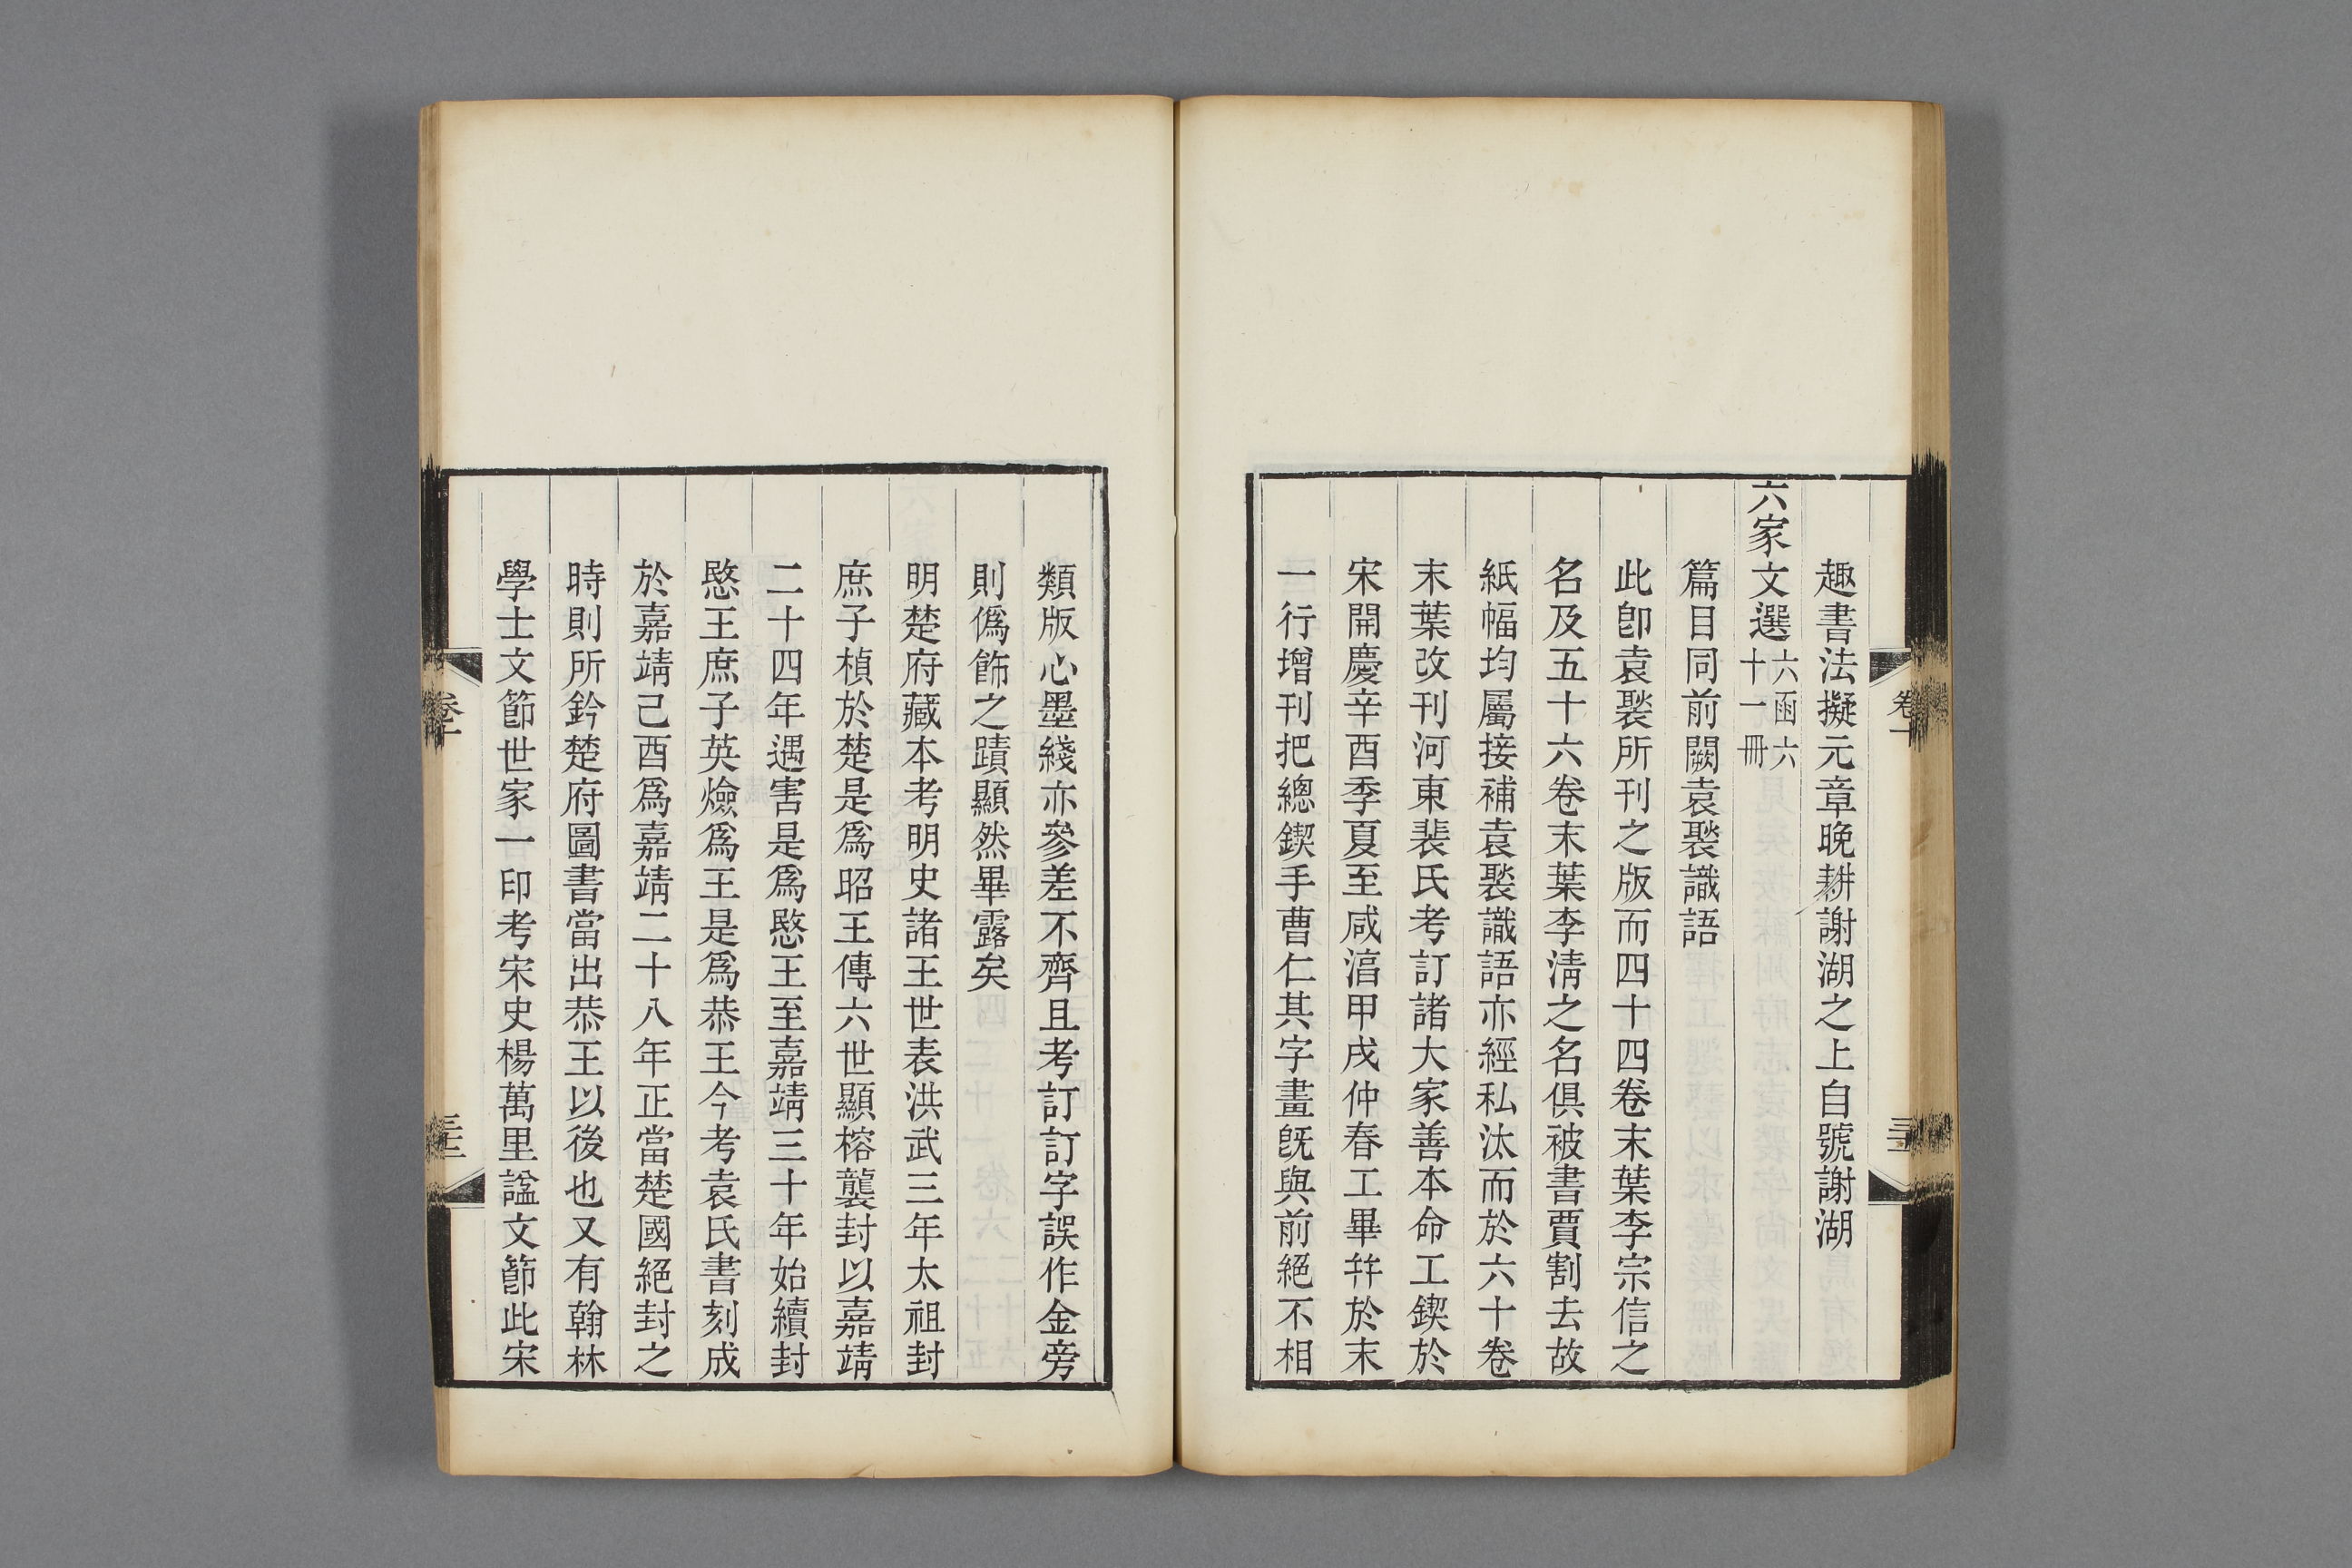 趣書法擬元章晚耕謝湖之上自號謝湖
六家文選
六函六
十一冊
篇目同前闕袁褧識語
此卽袁褧所刊之版而四十四卷末葉李宗信之
名及五十六卷末葉李淸之名俱被書賈割去故
紙幅均屬接補袁褧識語亦經私汰而於六十卷
末葉改刊河東裴氏考訂諸大家善本命工鍥於
宋開慶辛酉季夏至咸淯甲戌仲春工畢幷於末
一行增刊把總鍥手曹仁其字畫旣與前絕不相
類版心墨綫亦參差不齊且考訂訂字誤作金旁
則僞飾之蹟顯然畢露矣
明楚府藏本考明史諸王世表洪武三年太祖封
庶子楨於楚是爲昭王傳六世顯榕襲封以嘉靖
二十四年遇害是爲愍王至嘉靖三十年始續封
愍王庶子英㷿爲王是爲恭王今考袁氏書刻成
於嘉靖己酉爲嘉靖二十八年正當楚國絕封之
時則所鈐楚府圖書當出恭王以後也又有翰林
學士文節世家一印考宋史楊萬里諡文節此宋
卷十